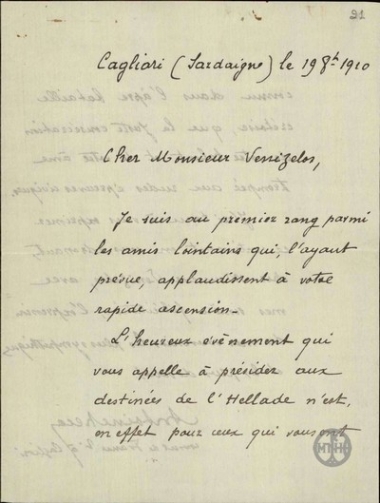 21
Cagliari (Sardaigne) le 19 8bre 1910
Cher Monsieur Venizelos,
Je suis au premier rang parmi
les amis lointains qui, l'ayant
prévue, applaudissent à votre
rapide ascension.
L'heureux évènement qui
vous appelle à présider aux
destinées de l'Hellade n'est,
en effet pour ceux qui vous ont